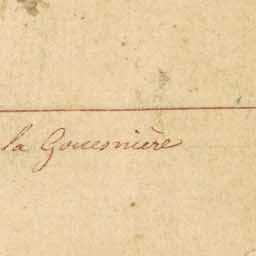 la Gouesnière